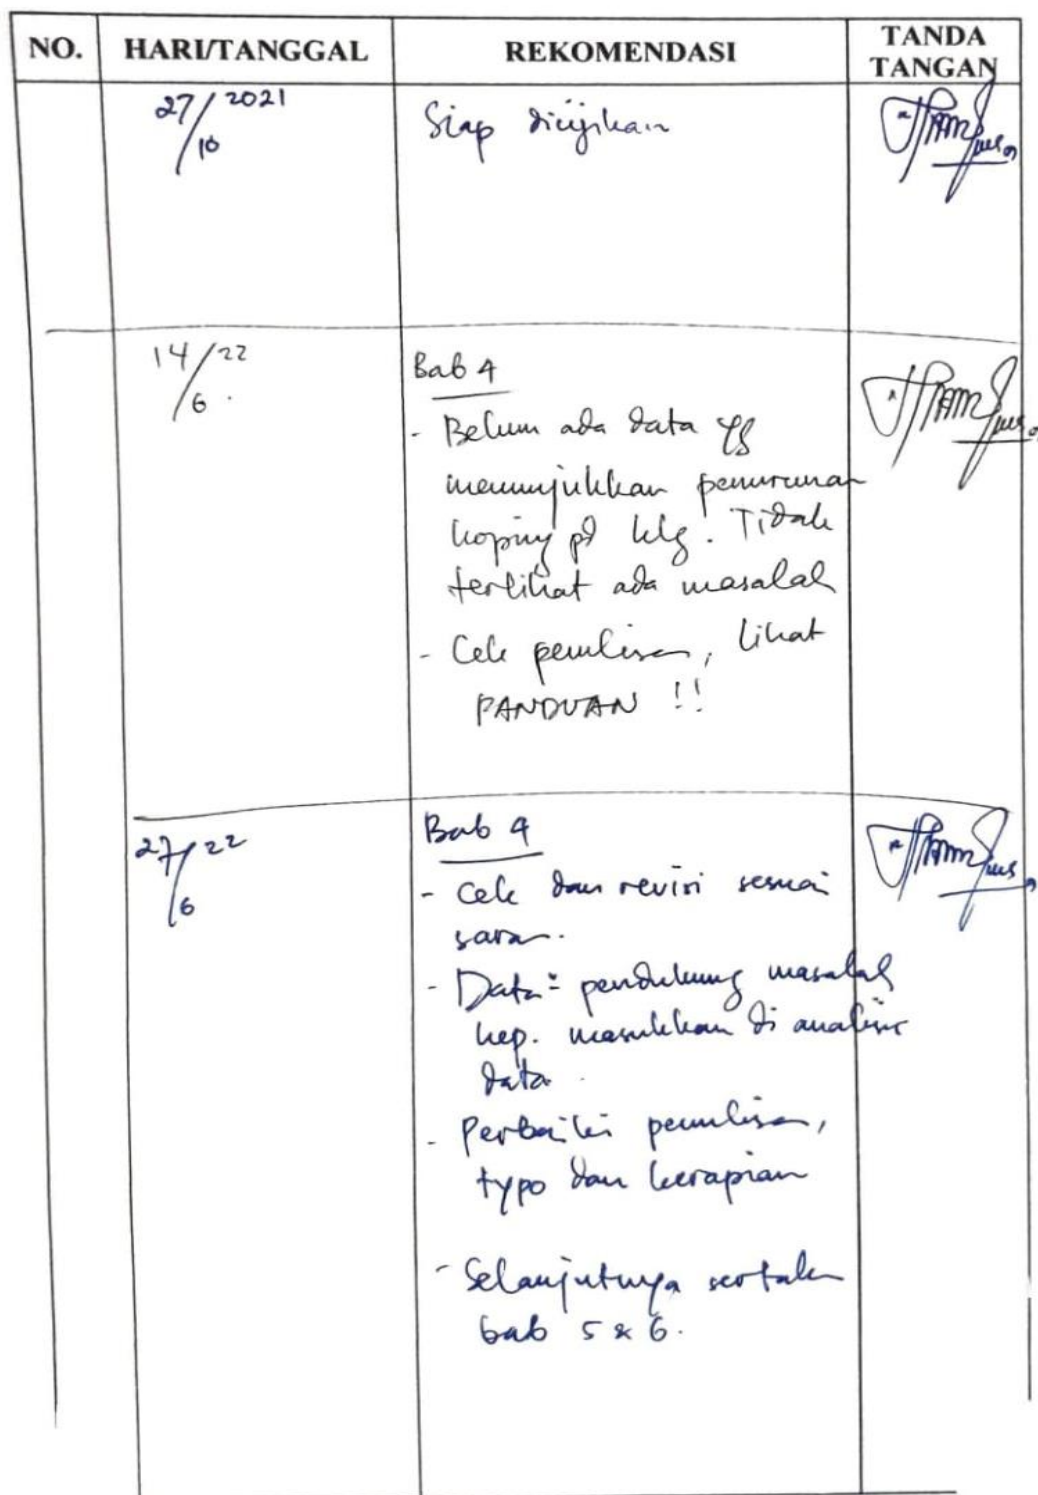 NO. HARI/TANGGAL REKOMENDASI TANDA TANGAN
27/10 2021 Siap diujikan
14/6 22 Bab 4
- Belum ada data yg
menunjukkan penurunan
koping pd klg. Tidak
terlihat ada masalah
- Cek penulisan, lihat
PANDUAN !!
27/6 22 Bab 4
- Cek dan revisi sesuai
saran.
- Data² pendukung masalah
kep. masukkan di analisis
data.
- Perbaiki penulisan,
typo dan kerapian
- Selanjutnya sertakan
bab 5 & 6.